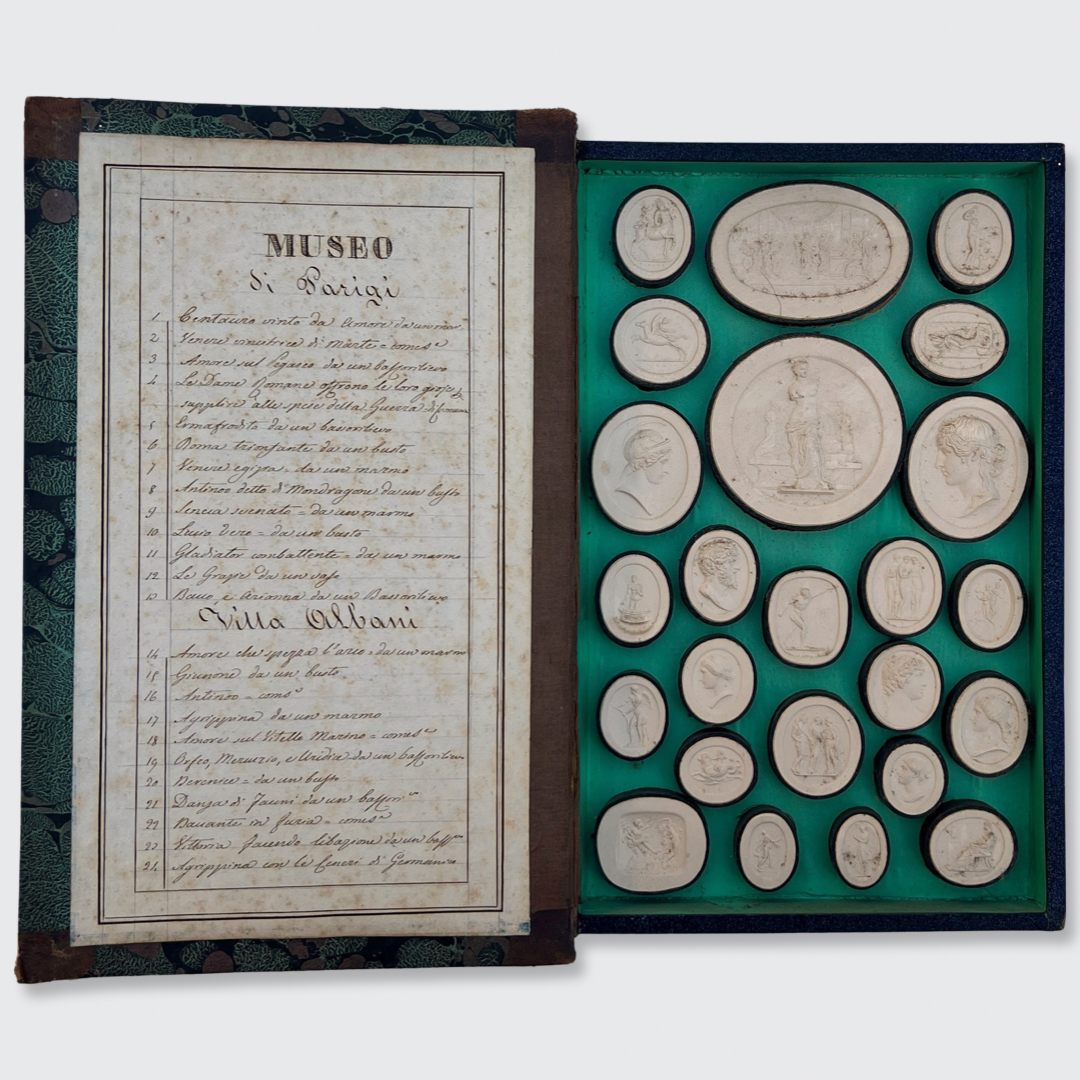 MUSEO
di Parigi
1 Centauro vinto da Amore da un mar
2 Venere vincitrice di Marte = come sª
3 Amore sul Pegaso da un bassorilievo
4 Le Dame Romane offrono le loro gioje p
supplire alle spese della Guerra di
5 Ermafrodito da un bassorilievo
6 Roma trionfante da un busto
7 Venere egizia = da un marmo
8 Antinoo detto di Mondragone da un busto
9 Seneca svenato = da un marmo
10 Lucio Vero = da un busto
11 Gladiator combattente = da un marmo
12 Le Grazie da un vaso
13 Bacco, e Arianna da un Bassorilievo
Villa Albani
14 Amore che spezza l'arco = da un marmo
15 Giunone da un busto
16 Antinoo = come sª
17 Agrippina da un marmo
18 Amore sul Vitello Marino = come sª
19 Orfeo, Mercurio, e Uridia da un bassorilievo
20 Berenice = da un busto
21 Danza di Fauni da un bassorº
22 Baccante in furia = come sª
23 Vittoria facendo libazione da un bassº
24 Agrippina con le Ceneri di Germanico